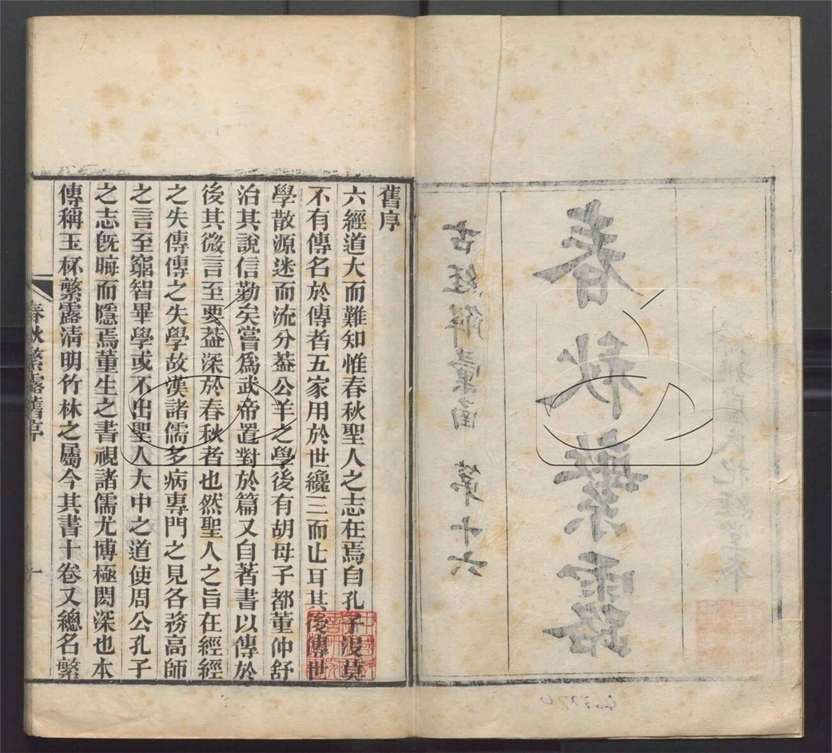 春秋繁露
古經解彙函
第十六
舊序
六經道大而難知惟春秋聖人之志在焉自孔子沒莫
不有傳名於傳者五家用於世纔三而止耳其後傳世
學散源迷而流分葢公羊之學後有胡母子都董仲舒
治其說信勤矣嘗爲武帝置對於篇又自著書以傳於
後其微言至要葢深於春秋者也然聖人之旨在經經
之失傳傳之失學故漢諸儒多病專門之見各務高師
之言至窮智畢學或不出聖人大中之道使周公孔子
之志旣晦而隱焉董生之書視諸儒尤博極閎深也本
傳稱玉杯蘩露淸明竹林之屬今其書十卷又總名繁
春秋繁露舊序
一